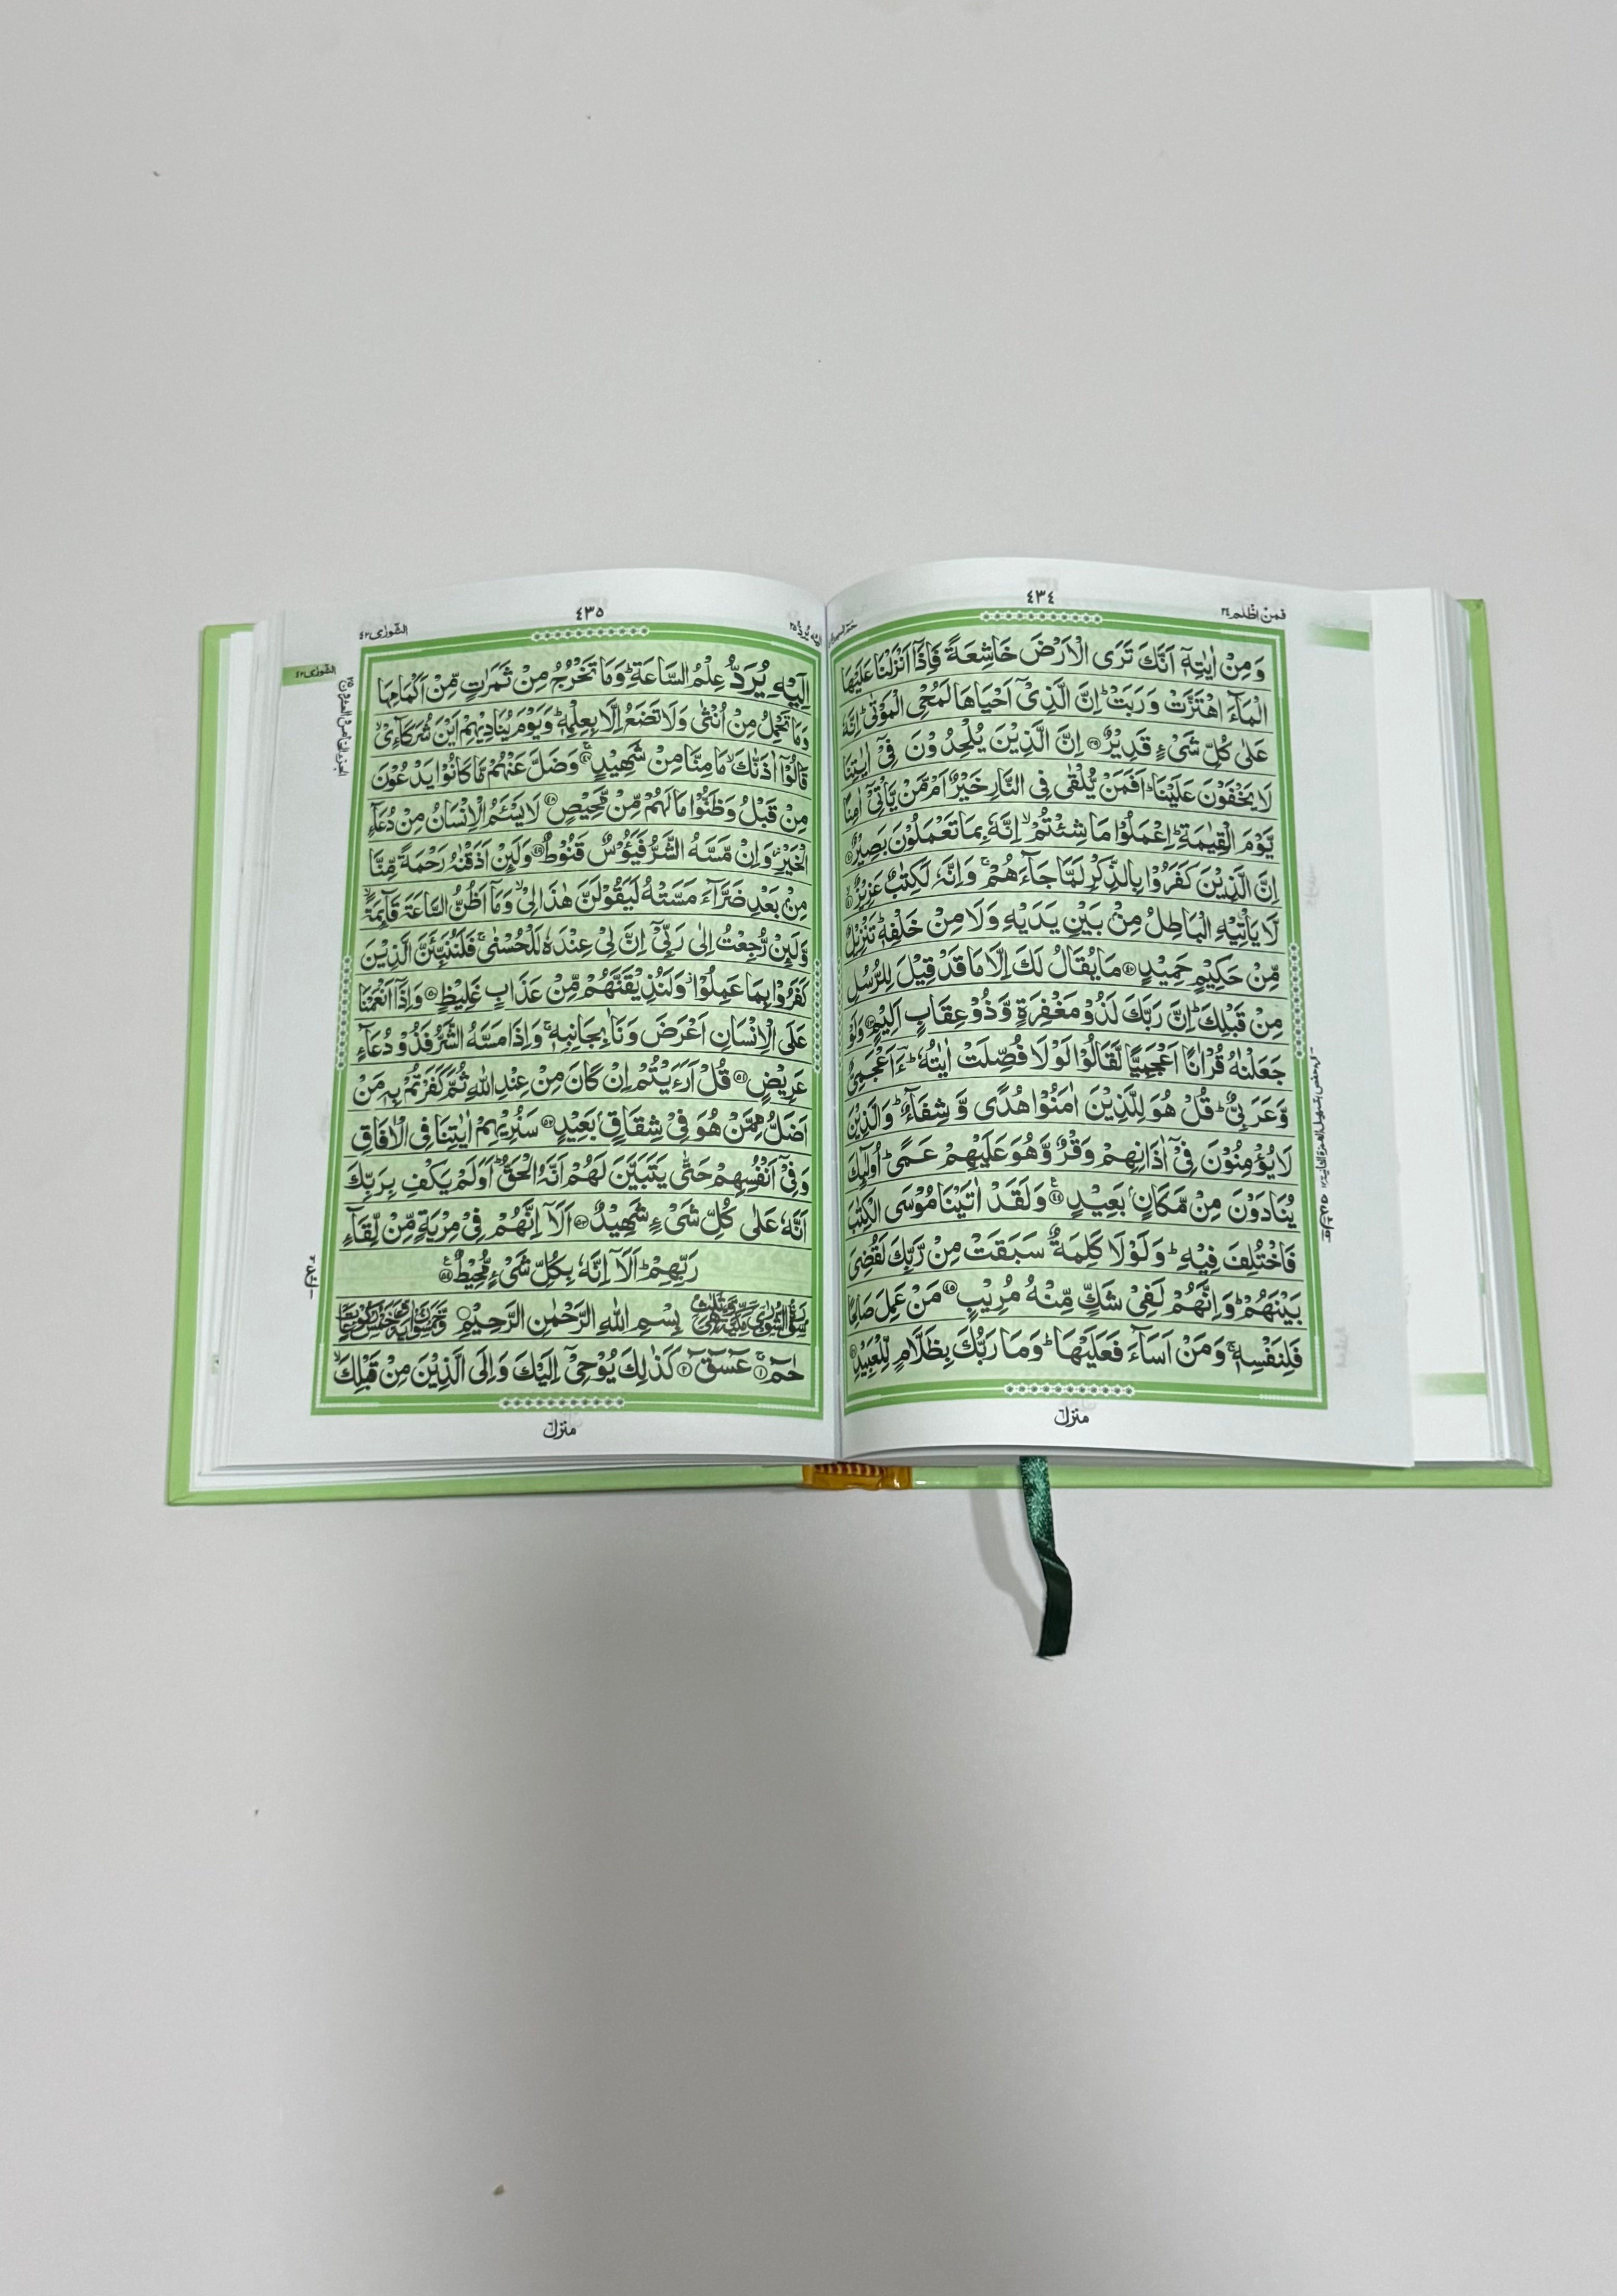 فمن اظلم ٢٤
٤٣٤
وَمِنْ اٰيٰتِهٖٓ اَنَّكَ تَرَى الْاَرْضَ خَاشِعَةً فَاِذَآ اَنْزَلْنَا عَلَيْهَا
الْمَآءَ اهْتَزَّتْ وَرَبَتْ ؕ اِنَّ الَّذِيْٓ اَحْيَاهَا لَمُحْيِ الْمَوْتٰى ؕ اِنَّهٗ
عَلٰى كُلِّ شَيْءٍ قَدِيْرٌ ٣٩ اِنَّ الَّذِيْنَ يُلْحِدُوْنَ فِيْٓ اٰيٰتِنَا
لَا يَخْفَوْنَ عَلَيْنَا ؕ اَفَمَنْ يُّلْقٰى فِى النَّارِ خَيْرٌ اَمْ مَّنْ يَّاْتِيْٓ اٰمِنًا
يَّوْمَ الْقِيٰمَةِ ؕ اِعْمَلُوْا مَا شِئْتُمْ ۙ اِنَّهٗ بِمَا تَعْمَلُوْنَ بَصِيْرٌ ٤٠
اِنَّ الَّذِيْنَ كَفَرُوْا بِالذِّكْرِ لَمَّا جَآءَهُمْ ۚ وَاِنَّهٗ لَكِتٰبٌ عَزِيْزٌ ۙ ٤١
لَّا يَاْتِيْهِ الْبَاطِلُ مِنْۢ بَيْنِ يَدَيْهِ وَلَا مِنْ خَلْفِهٖ ؕ تَنْزِيْلٌ
مِّنْ حَكِيْمٍ حَمِيْدٍ ٤٢ مَا يُقَالُ لَكَ اِلَّا مَا قَدْ قِيْلَ لِلرُّسُلِ
مِنْ قَبْلِكَ ؕ اِنَّ رَبَّكَ لَذُوْ مَغْفِرَةٍ وَّذُوْ عِقَابٍ اَلِيْمٍ ٤٣ وَلَوْ
جَعَلْنٰهُ قُرْاٰنًا اَعْجَمِيًّا لَّقَالُوْا لَوْلَا فُصِّلَتْ اٰيٰتُهٗ ؕ ءَاَعْجَمِيٌّ
وَّعَرَبِيٌّ ؕ قُلْ هُوَ لِلَّذِيْنَ اٰمَنُوْا هُدًى وَّشِفَآءٌ ؕ وَالَّذِيْنَ
لَا يُؤْمِنُوْنَ فِيْٓ اٰذَانِهِمْ وَقْرٌ وَّهُوَ عَلَيْهِمْ عَمًى ؕ اُولٰٓئِكَ
يُنَادَوْنَ مِنْ مَّكَانٍۭ بَعِيْدٍ ٤٤ وَلَقَدْ اٰتَيْنَا مُوْسَى الْكِتٰبَ
فَاخْتُلِفَ فِيْهِ ؕ وَلَوْلَا كَلِمَةٌ سَبَقَتْ مِنْ رَّبِّكَ لَقُضِيَ
بَيْنَهُمْ ؕ وَاِنَّهُمْ لَفِيْ شَكٍّ مِّنْهُ مُرِيْبٍ ٤٥ مَنْ عَمِلَ صَالِحًا
فَلِنَفْسِهٖ ۚ وَمَنْ اَسَآءَ فَعَلَيْهَا ؕ وَمَا رَبُّكَ بِظَلَّامٍ لِّلْعَبِيْدِ ٤٦
منزل
اليه يرد ٢٥
٤٣٥
الشورٰى ٤٢
الشورٰى ٤٢
اِلَيْهِ يُرَدُّ عِلْمُ السَّاعَةِ ؕ وَمَا تَخْرُجُ مِنْ ثَمَرٰتٍ مِّنْ اَكْمَامِهَا
وَمَا تَحْمِلُ مِنْ اُنْثٰى وَلَا تَضَعُ اِلَّا بِعِلْمِهٖ ؕ وَيَوْمَ يُنَادِيْهِمْ اَيْنَ شُرَكَآءِيْ ۙ
قَالُوْٓا اٰذَنّٰكَ ۙ مَا مِنَّا مِنْ شَهِيْدٍ ۚ ٤٧ وَضَلَّ عَنْهُمْ مَّا كَانُوْا يَدْعُوْنَ
مِنْ قَبْلُ وَظَنُّوْا مَا لَهُمْ مِّنْ مَّحِيْصٍ ٤٨ لَا يَسْئَمُ الْاِنْسَانُ مِنْ دُعَآءِ
الْخَيْرِ ؗ وَاِنْ مَّسَّهُ الشَّرُّ فَيَئُوْسٌ قَنُوْطٌ ٤٩ وَلَئِنْ اَذَقْنٰهُ رَحْمَةً مِّنَّا
مِنْۢ بَعْدِ ضَرَّآءَ مَسَّتْهُ لَيَقُوْلَنَّ هٰذَا لِيْ ۙ وَمَآ اَظُنُّ السَّاعَةَ قَآئِمَةً ۙ
وَّلَئِنْ رُّجِعْتُ اِلٰى رَبِّيْٓ اِنَّ لِيْ عِنْدَهٗ لَلْحُسْنٰى ۚ فَلَنُنَبِّئَنَّ الَّذِيْنَ
كَفَرُوْا بِمَا عَمِلُوْا ؗ وَلَنُذِيْقَنَّهُمْ مِّنْ عَذَابٍ غَلِيْظٍ ٥٠ وَاِذَآ اَنْعَمْنَا
عَلَى الْاِنْسَانِ اَعْرَضَ وَنَاٰ بِجَانِبِهٖ ۚ وَاِذَا مَسَّهُ الشَّرُّ فَذُوْ دُعَآءٍ
عَرِيْضٍ ٥١ قُلْ اَرَءَيْتُمْ اِنْ كَانَ مِنْ عِنْدِ اللّٰهِ ثُمَّ كَفَرْتُمْ بِهٖ مَنْ
اَضَلُّ مِمَّنْ هُوَ فِيْ شِقَاقٍۭ بَعِيْدٍ ٥٢ سَنُرِيْهِمْ اٰيٰتِنَا فِى الْاٰفَاقِ
وَفِيْٓ اَنْفُسِهِمْ حَتّٰى يَتَبَيَّنَ لَهُمْ اَنَّهُ الْحَقُّ ؕ اَوَلَمْ يَكْفِ بِرَبِّكَ
اَنَّهٗ عَلٰى كُلِّ شَيْءٍ شَهِيْدٌ ٥٣ اَلَآ اِنَّهُمْ فِيْ مِرْيَةٍ مِّنْ لِّقَآءِ
رَبِّهِمْ ؕ اَلَآ اِنَّهٗ بِكُلِّ شَيْءٍ مُّحِيْطٌ ٥٤
بِسْمِ اللّٰهِ الرَّحْمٰنِ الرَّحِيْمِ
حٰمٓ ۚ ١ عٓسٓقٓ ٢ كَذٰلِكَ يُوْحِيْٓ اِلَيْكَ وَاِلَى الَّذِيْنَ مِنْ قَبْلِكَ ۙ
منزل